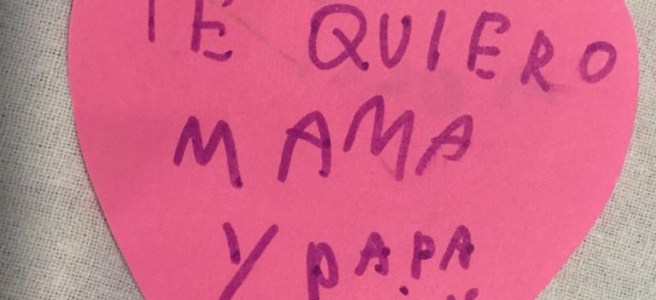 TE QUIERO
MAMA
Y PAPA